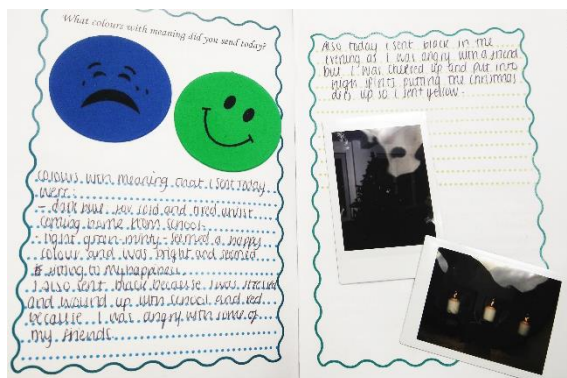 What colours with meaning did you send today?
colours with meaning that I sent today
were:
- dark blue - for cold and tired whilst
coming home from school.
- light green minty - seemed a happy
colour and was bright and seemed
fitting to my happiness
I also sent black because I was stressed
and wound up with school and red
because I was angry with some of
my friends.
Also today I sent black in the
evening as I was angry with a friend
but I was cheered up and put into
high spirits putting the christmas
decs up so I sent yellow.